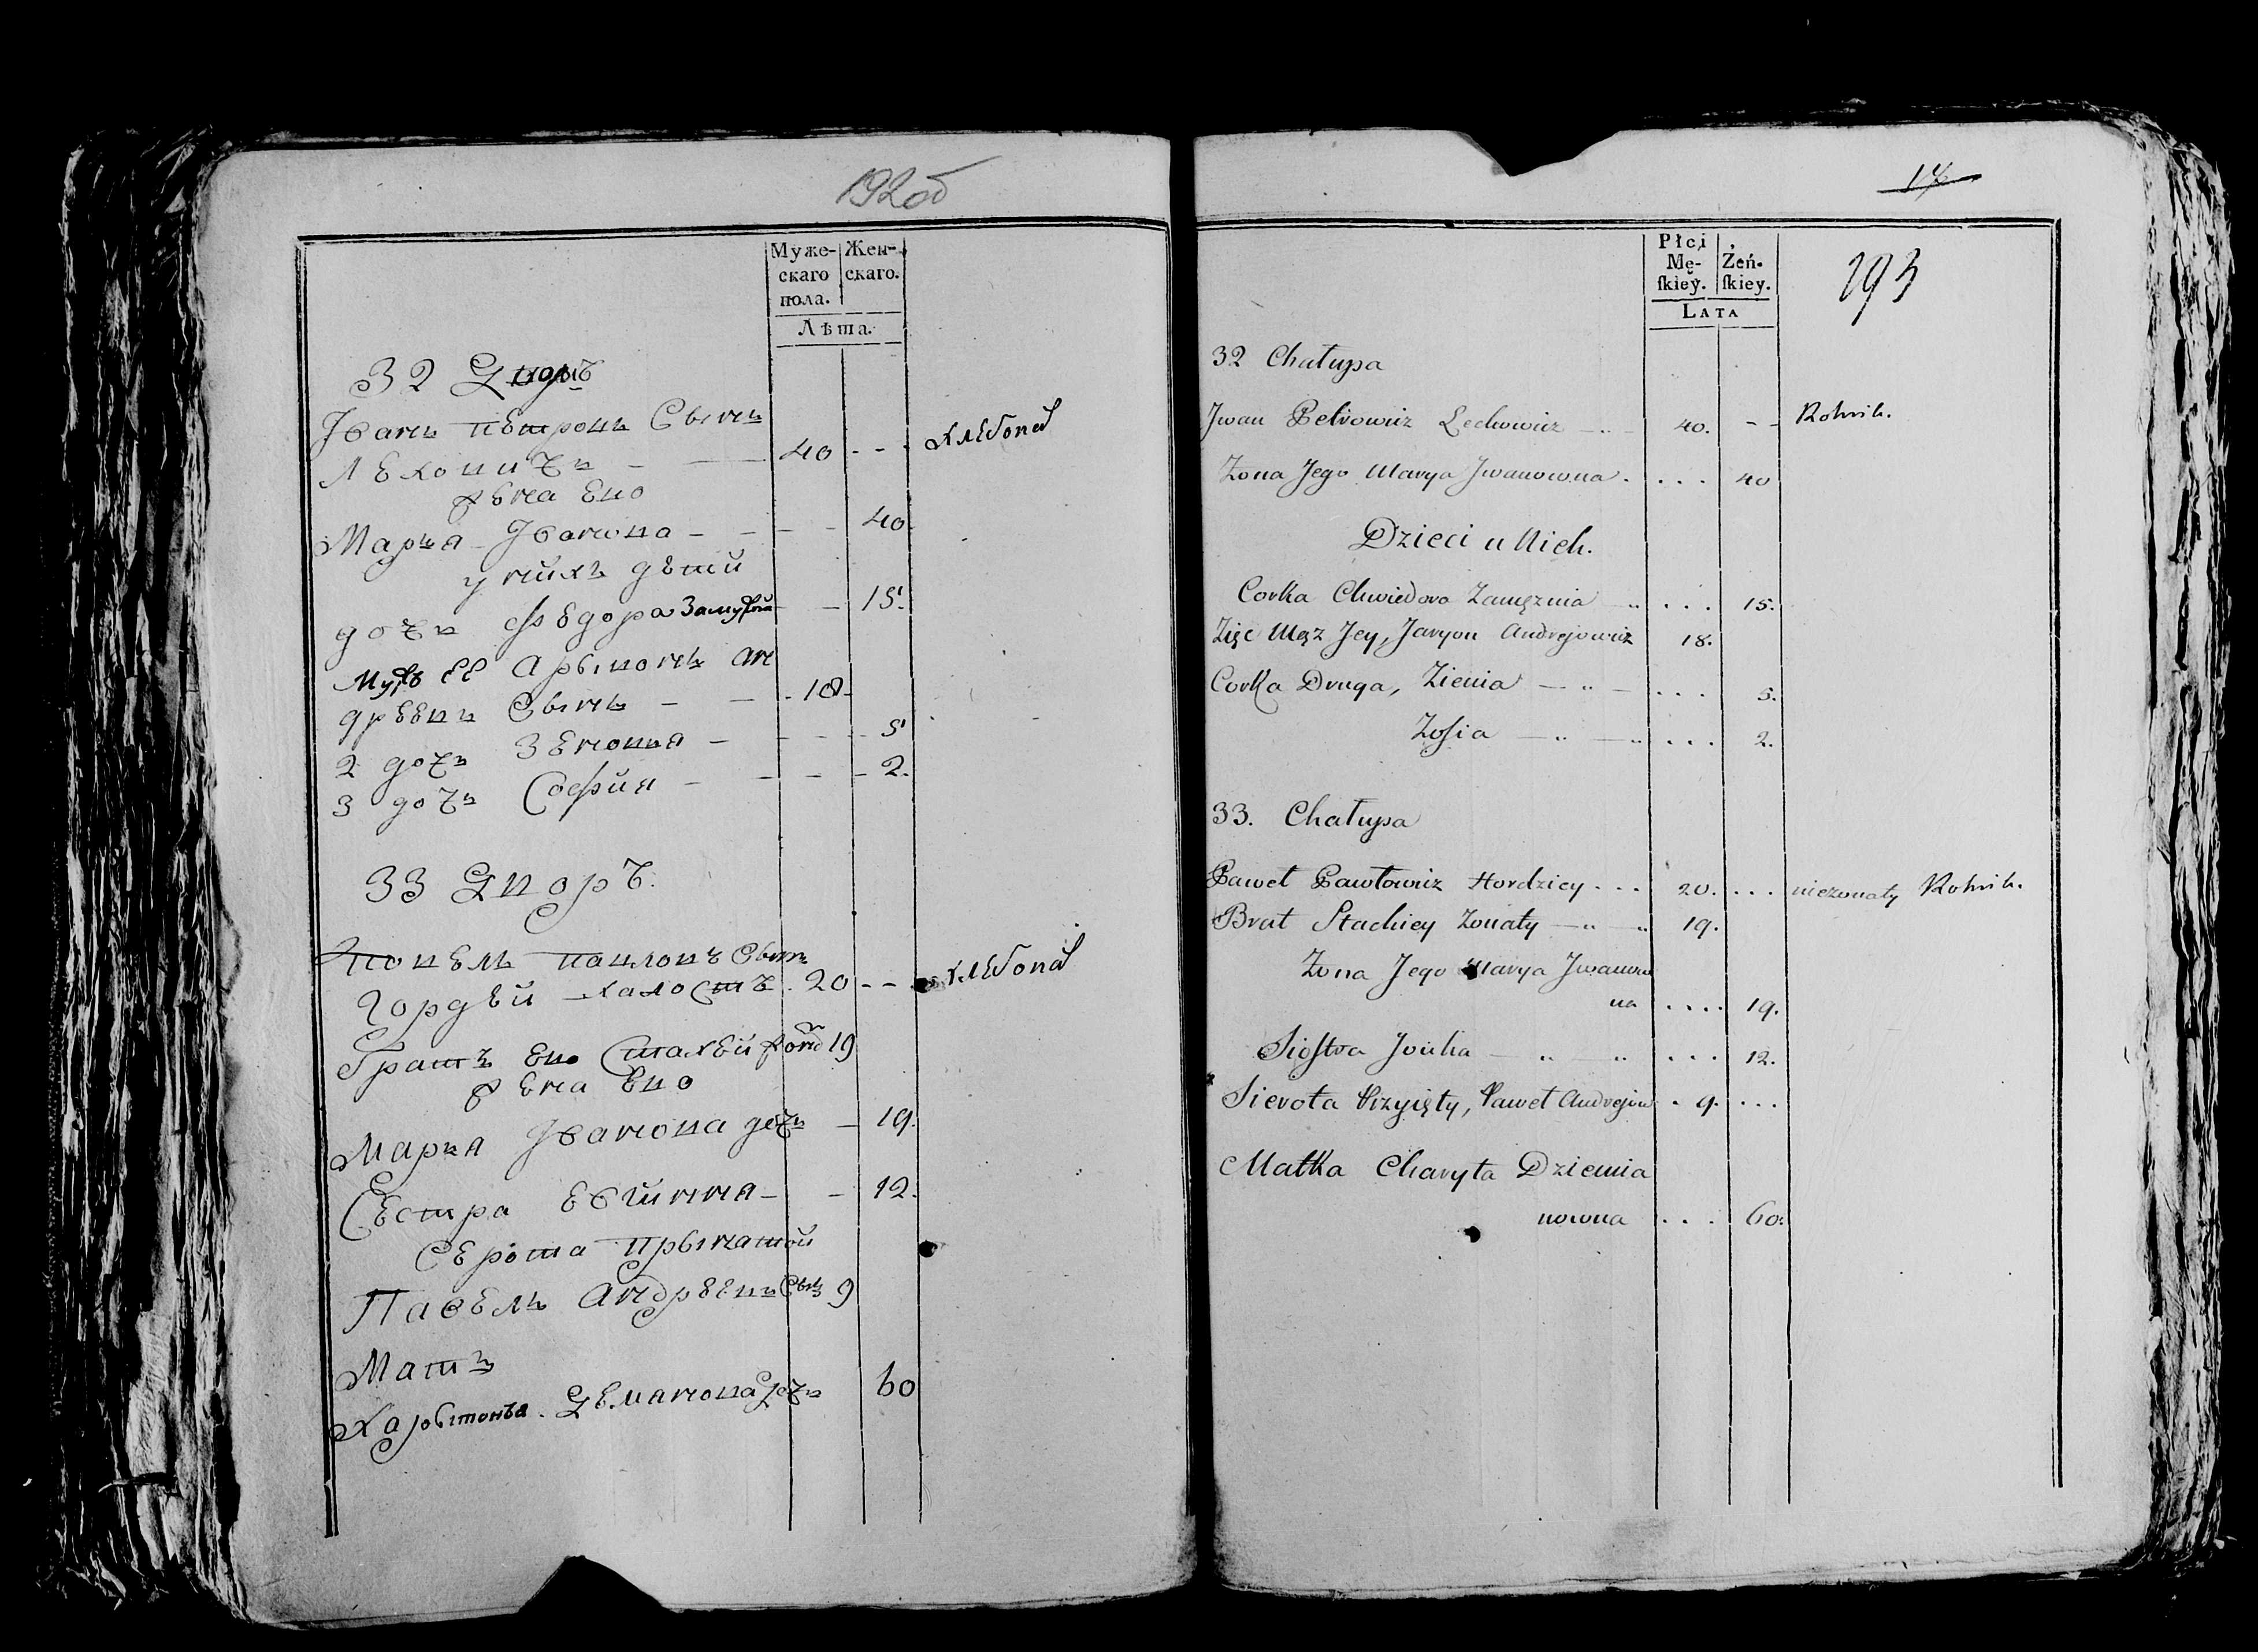 192об
Муже-
скаго
пола.
Жен-
скаго.
Лѣта.
32 Дворъ
Іванъ петровъ Сынъ
Леховичъ - — 40 - - - хлебопа
жена Ево
Марья Іванова - - - - 40
у нихъ дѣти
дочь Федора Замужня - - 15.
Мужъ ЕЕ Арывонъ Ан
дреевъ Сынъ - — - 18 -
2 дочь Зеновья - - - - 5
3 дочь София - - - - 2.
33 Дворъ.
повелъ павловъ Сынъ
Гордѣй халостъ . 20 - - - хлебопа
Братъ Ево Стахей 19
жена Ево
Марья Іванова дочь — 19.
Сестра - - 12.
Серота
Павелъ Андреевъ Сынъ 9
Мать
60
17
193
Płci
Mę-
ſkiey.
Żeń-
ſkiey.
LATA
32 Chałupa
Jwan Petrowicz Lechowicz — .. - 40. - - Rolnik.
Zona Jego Marya Jwanowna . . . . 40
Dzieci u Nich.
Corka Chwiedora Zamężnia .. . . . 15.
Zięc Mąz Jey, Jaryon Andrejowicz 18.
Corka Druga, Zienia — .. — . . . 5.
Zoſia — .. — .. . . . 2.
33. Chałupa
Paweł Pawłowicz Hordziey . . . 20. . . . niezonaty Rolnik.
Brat Stachiey Zonaty — .. — .. 19.
Zona Jego Marya Jwanow
na . . . . 19.
Sioſtra — .. — .. . . . 12.
Sierota Przyięty, Paweł Andrejow . 9. . . .
Matka Charyta Dziemia
nowna . . . 60.